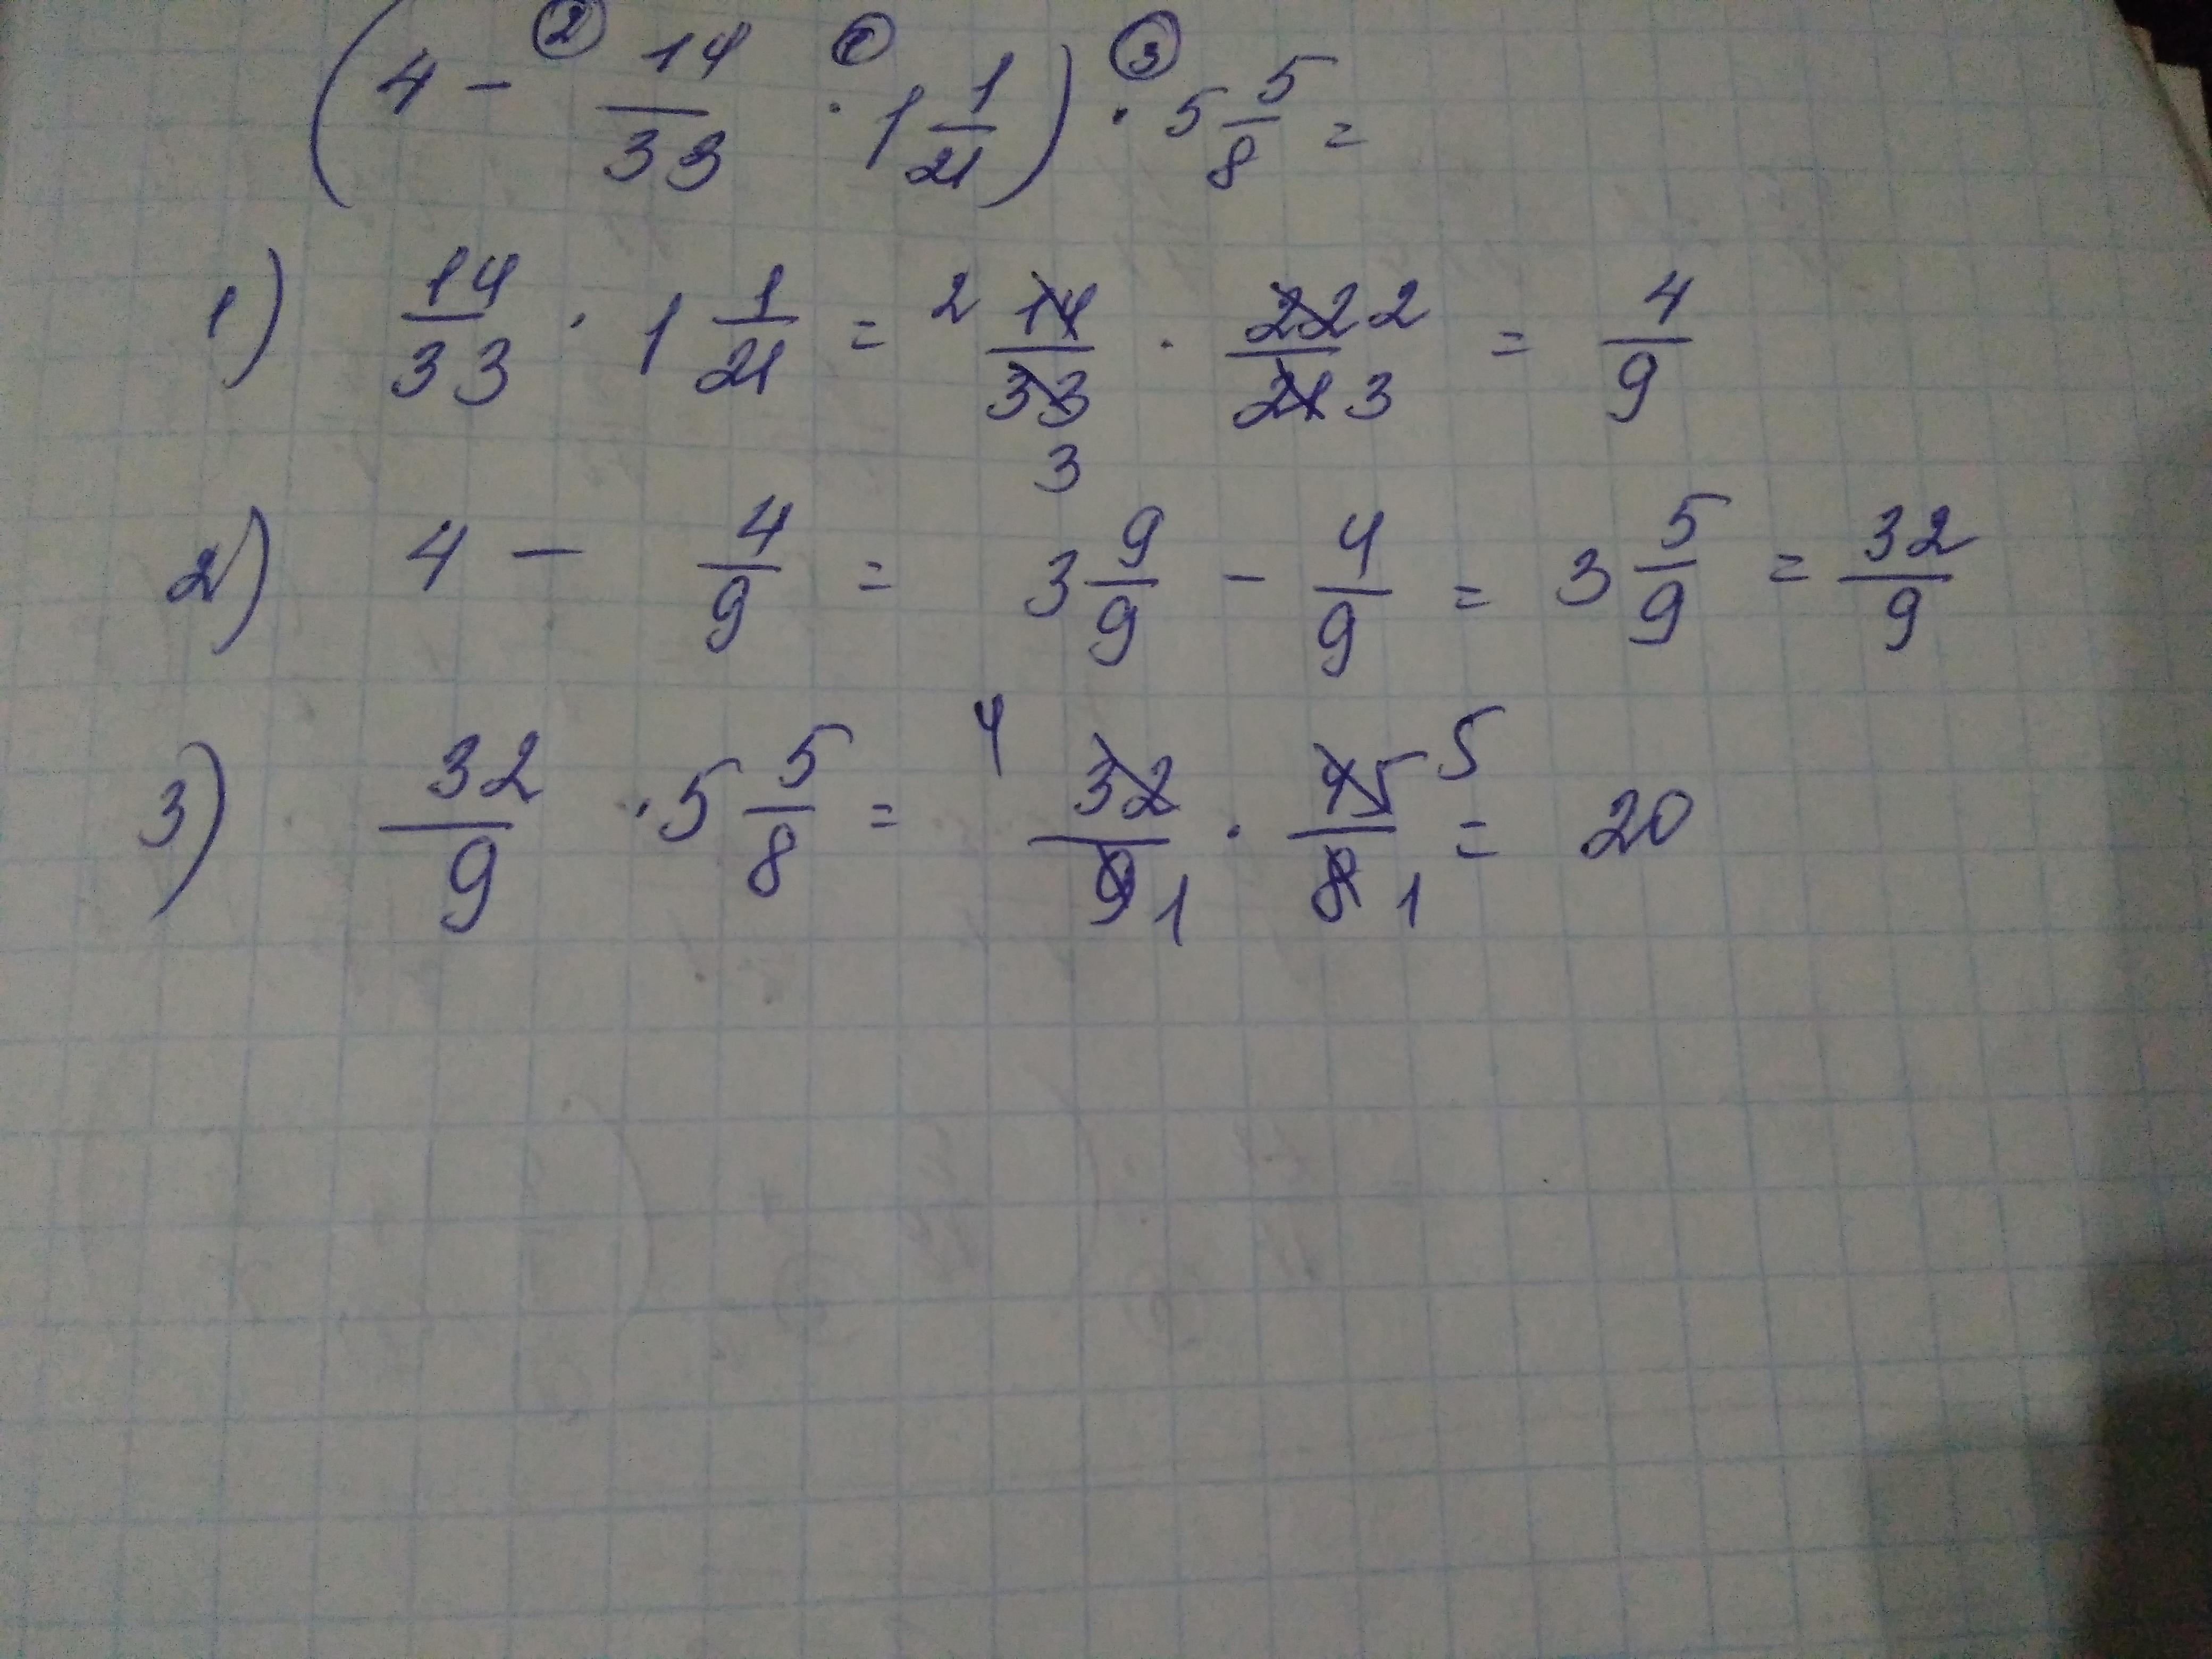 (4 - ② 14/33 ① · 1 1/21) ③ · 5 5/8 =
1) 14/33 · 1 1/21 = 2 14/33 3 · 22 2/21 3 = 4/9
2) 4 - 4/9 = 3 9/9 - 4/9 = 3 5/9 = 32/9
3) 32/9 · 5 5/8 = 4 32/9 1 · 45 5/8 1 = 20